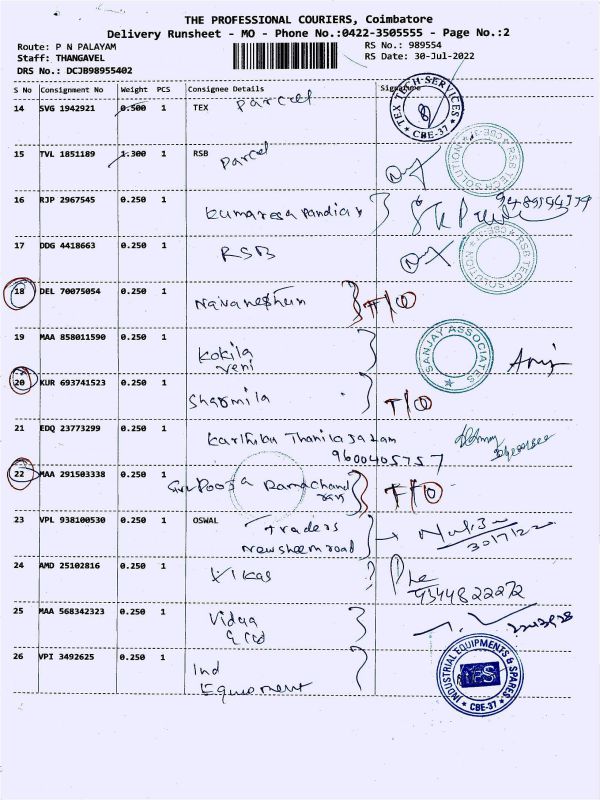 THE PROFESSIONAL COURIERS, Coimbatore
Delivery Runsheet - MO - Phone No.:0422-3505555 - Page No.:2
Route: P N PALAYAM RS No.: 989554
Staff: THANGAVEL RS Date: 30-Jul-2022
DRS No.: DCJB98955402
S No Consignment No Weight PCS Consignee Details Signature
14 SVG 1942921 0.500 1 TEX Parcel
TEX TECH SERVICES CBE-37
15 TVL 1851189 1.300 1 RSB Parcel
RSB TECH SOLUTION CBE
16 RJP 2967545 0.250 1 Kumaresa Pandian
17 DDG 4418663 0.250 1 RSB
RSB TECH SOLUTION CBE
18 DEL 70075054 0.250 1 T/O
19 MAA 858011590 0.250 1 Kokila
veni
SANJAY ASSOCIATES
20 KUR 693741523 0.250 1 Sharmila T/O
21 EDQ 23773299 0.250 1 Karthika
9600405757
22 MAA 291503338 0.250 1 Pooja Ramachand T/O
23 VPL 938100530 0.250 1 OSWAL Traders
road 30/7/22
24 AMD 25102816 0.250 1 Vikas
9344822272
25 MAA 568342323 0.250 1 Vidya
26 VPI 3492625 0.250 1 Ind
Equipment
INDUSTRIAL EQUIPMENTS & SPARES IES CBE-37